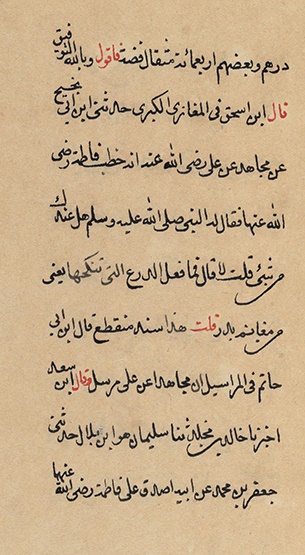 درهم وبعضهم اربعمائة مثقال فضة فاقول وبالله التوفيق
قال ابن اسحق فى المغازى الكبرى حدثنى ابن ابى نجيح
عن مجاهد عن على رضى الله عنه انه خطب فاطمة رضى
الله عنها فقال له النبى صلى الله عليه وسلم هل عندك
من شئ قلت لا قال فما فعل الدرع التى تنكحها يعنى
من مغانم بدر قلت هذا سند منقطع قال ابن ابى
حاتم فى المراسيل ان مجاهدا عن على مرسل وقال ابن سعد
اخبرنا خالد بن مخلد ثنا سليمان هو ابن بلال حدثنى
جعفر بن محمد عن ابيه اصدق على فاطمة رضى الله عنها